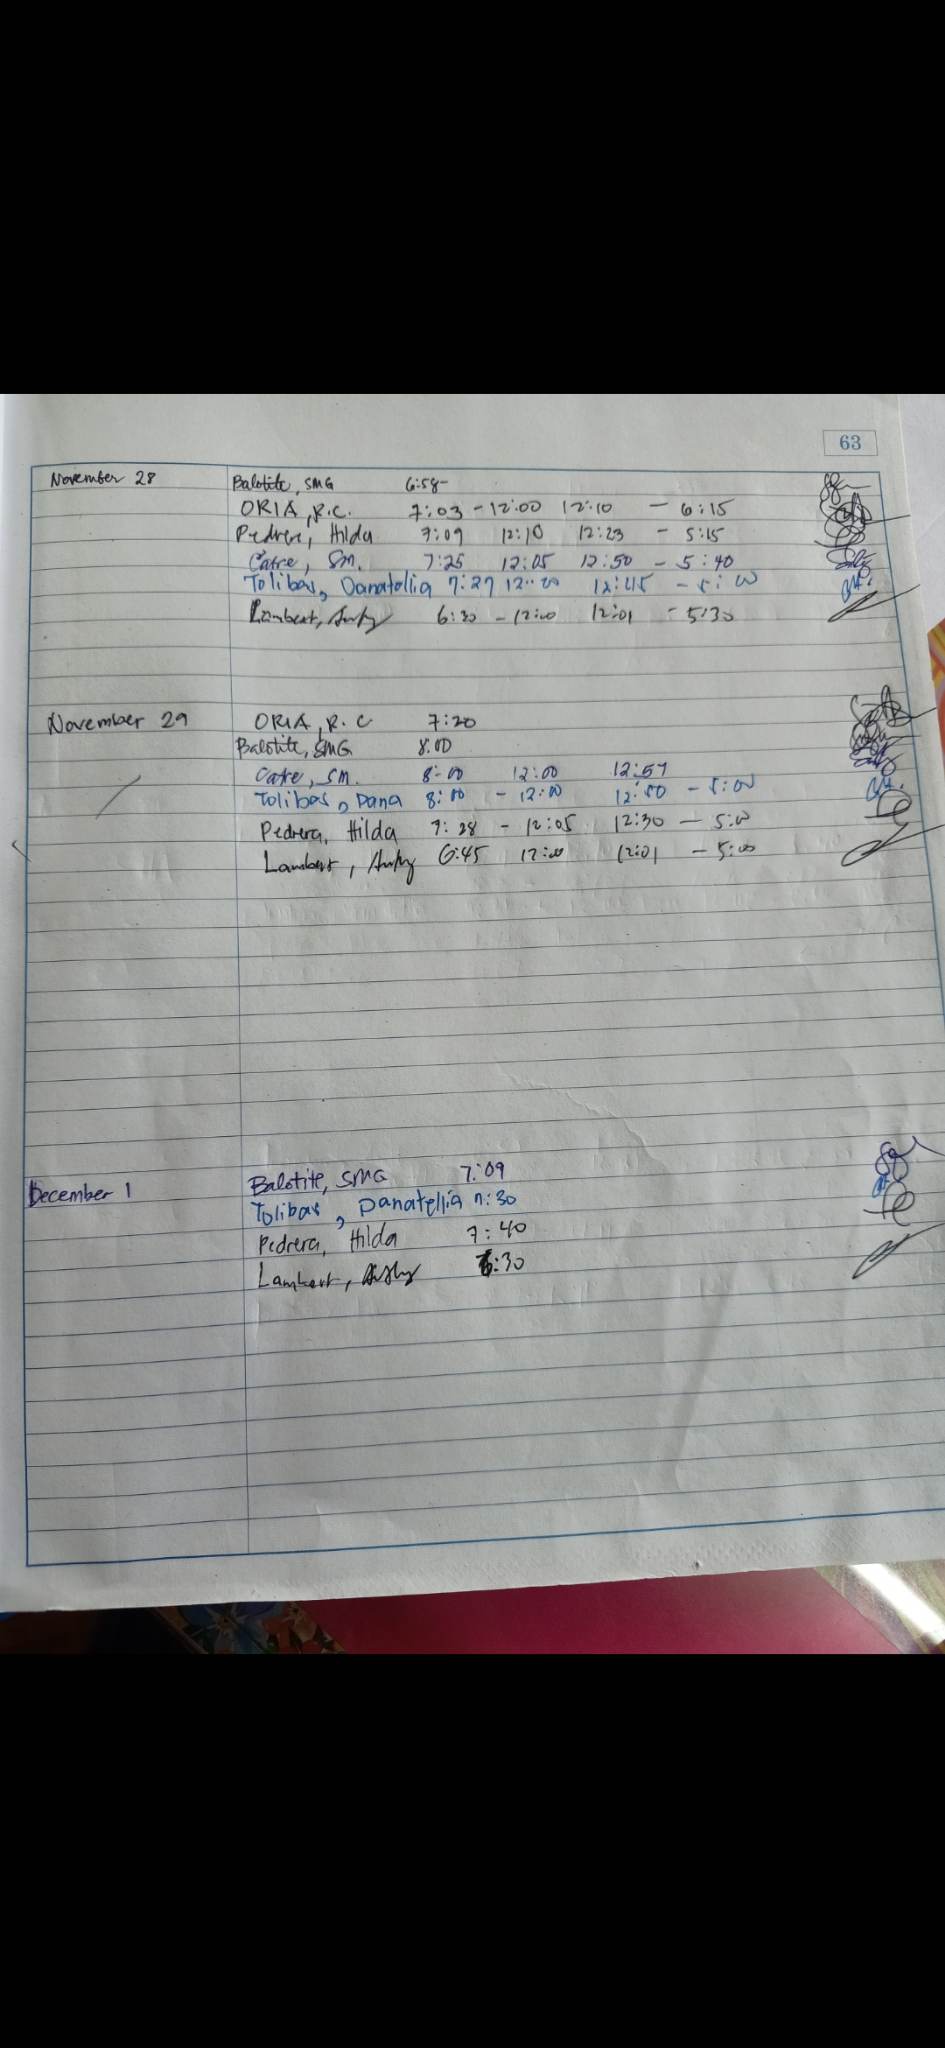 63
November 28 Balotite, SMG 6:58-
ORIA, R.C. 7:03 - 12:00 12:10 - 6:15
Pedrera, Hilda 7:09 12:10 12:23 - 5:15
Catre, SM. 7:25 12:05 12:50 - 5:40
Tolibas, Danatellia 7:27 12:00 12:45 - 5:00
Lambert, 6:30 - 12:00 12:01 - 5:30
November 29 ORIA, R.C 7:20
Balotite, SMG 8:00
Catre, SM. 8:00 12:00 12:57
Tolibas, Dana 8:00 - 12:00 12:50 - 5:00
Pedrera, Hilda 7:28 - 12:05 12:30 - 5:00
Lambert, 6:45 12:00 12:01 - 5:00
December 1 Balotite, SMG 7:09
Tolibas, Danatellia 7:30
Pedrera, Hilda 7:40
Lambert, 6:30